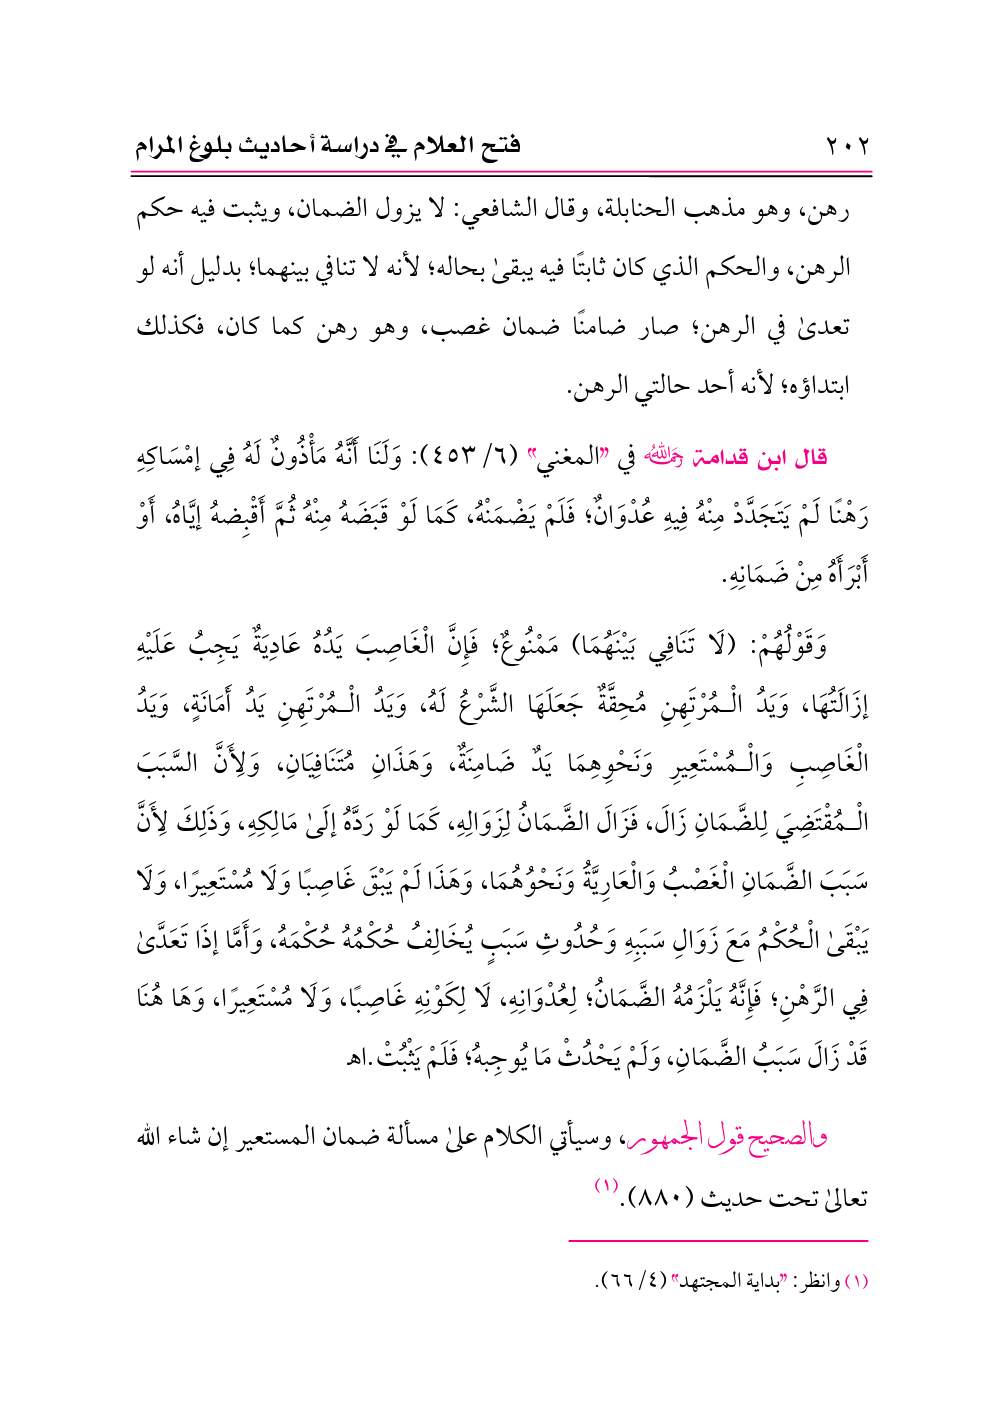 ٢٠٢ فتح العلام في دراسة أحاديث بلوغ المرام
رهن، وهو مذهب الحنابلة، وقال الشافعي: لا يزول الضمان، ويثبت فيه حكم
الرهن، والحكم الذي كان ثابتًا فيه يبقىٰ بحاله؛ لأنه لا تنافي بينهما؛ بدليل أنه لو
تعدىٰ في الرهن؛ صار ضامنًا ضمان غصب، وهو رهن كما كان، فكذلك
ابتداؤه؛ لأنه أحد حالتي الرهن.
قال ابن قدامة رحمه الله في "المغني" (٦/ ٤٥٣): وَلَنَا أَنَّهُ مَأْذُونٌ لَهُ فِي إمْسَاكِهِ
رَهْنًا لَمْ يَتَجَدَّدْ مِنْهُ فِيهِ عُدْوَانٌ؛ فَلَمْ يَضْمَنْهُ، كَمَا لَوْ قَبَضَهُ مِنْهُ ثُمَّ أَقْبِضهُ إيَّاهُ، أَوْ
أَبْرَأَهُ مِنْ ضَمَانِهِ.
وَقَوْلُهُمْ: (لَا تَنَافِي بَيْنَهُمَا) مَمْنُوعٌ؛ فَإِنَّ الْغَاصِبَ يَدُهُ عَادِيَةٌ يَجِبُ عَلَيْهِ
إزَالَتُهَا، وَيَدُ الْـمُرْتَهِنِ مُحِقَّةٌ جَعَلَهَا الشَّرْعُ لَهُ، وَيَدُ الْـمُرْتَهِنِ يَدُ أَمَانَةٍ، وَيَدُ
الْغَاصِبِ وَالْـمُسْتَعِيرِ وَنَحْوِهِمَا يَدٌ ضَامِنَةٌ، وَهَذَانِ مُتَنَافِيَانِ، وَلِأَنَّ السَّبَبَ
الْـمُقْتَضِيَ لِلضَّمَانِ زَالَ، فَزَالَ الضَّمَانُ لِزَوَالِهِ، كَمَا لَوْ رَدَّهُ إلَىٰ مَالِكِهِ، وَذَلِكَ لِأَنَّ
سَبَبَ الضَّمَانِ الْغَصْبُ وَالْعَارِيَّةُ وَنَحْوُهُمَا، وَهَذَا لَمْ يَبْقَ غَاصِبًا وَلَا مُسْتَعِيرًا، وَلَا
يَبْقَىٰ الْحُكْمُ مَعَ زَوَالِ سَبَبِهِ وَحُدُوثِ سَبَبٍ يُخَالِفُ حُكْمُهُ حُكْمَهُ، وَأَمَّا إذَا تَعَدَّىٰ
فِي الرَّهْنِ؛ فَإِنَّهُ يَلْزَمُهُ الضَّمَانُ؛ لِعُدْوَانِهِ، لَا لِكَوْنِهِ غَاصِبًا، وَلَا مُسْتَعِيرًا، وَهَا هُنَا
قَدْ زَالَ سَبَبُ الضَّمَانِ، وَلَمْ يَحْدُثْ مَا يُوجِبهُ؛ فَلَمْ يَثْبُتْ.اهـ
والصحيح قول الجمهور، وسيأتي الكلام علىٰ مسألة ضمان المستعير إن شاء الله
تعالىٰ تحت حديث (٨٨٠).(١)
(١) وانظر: "بداية المجتهد" (٤/ ٦٦).